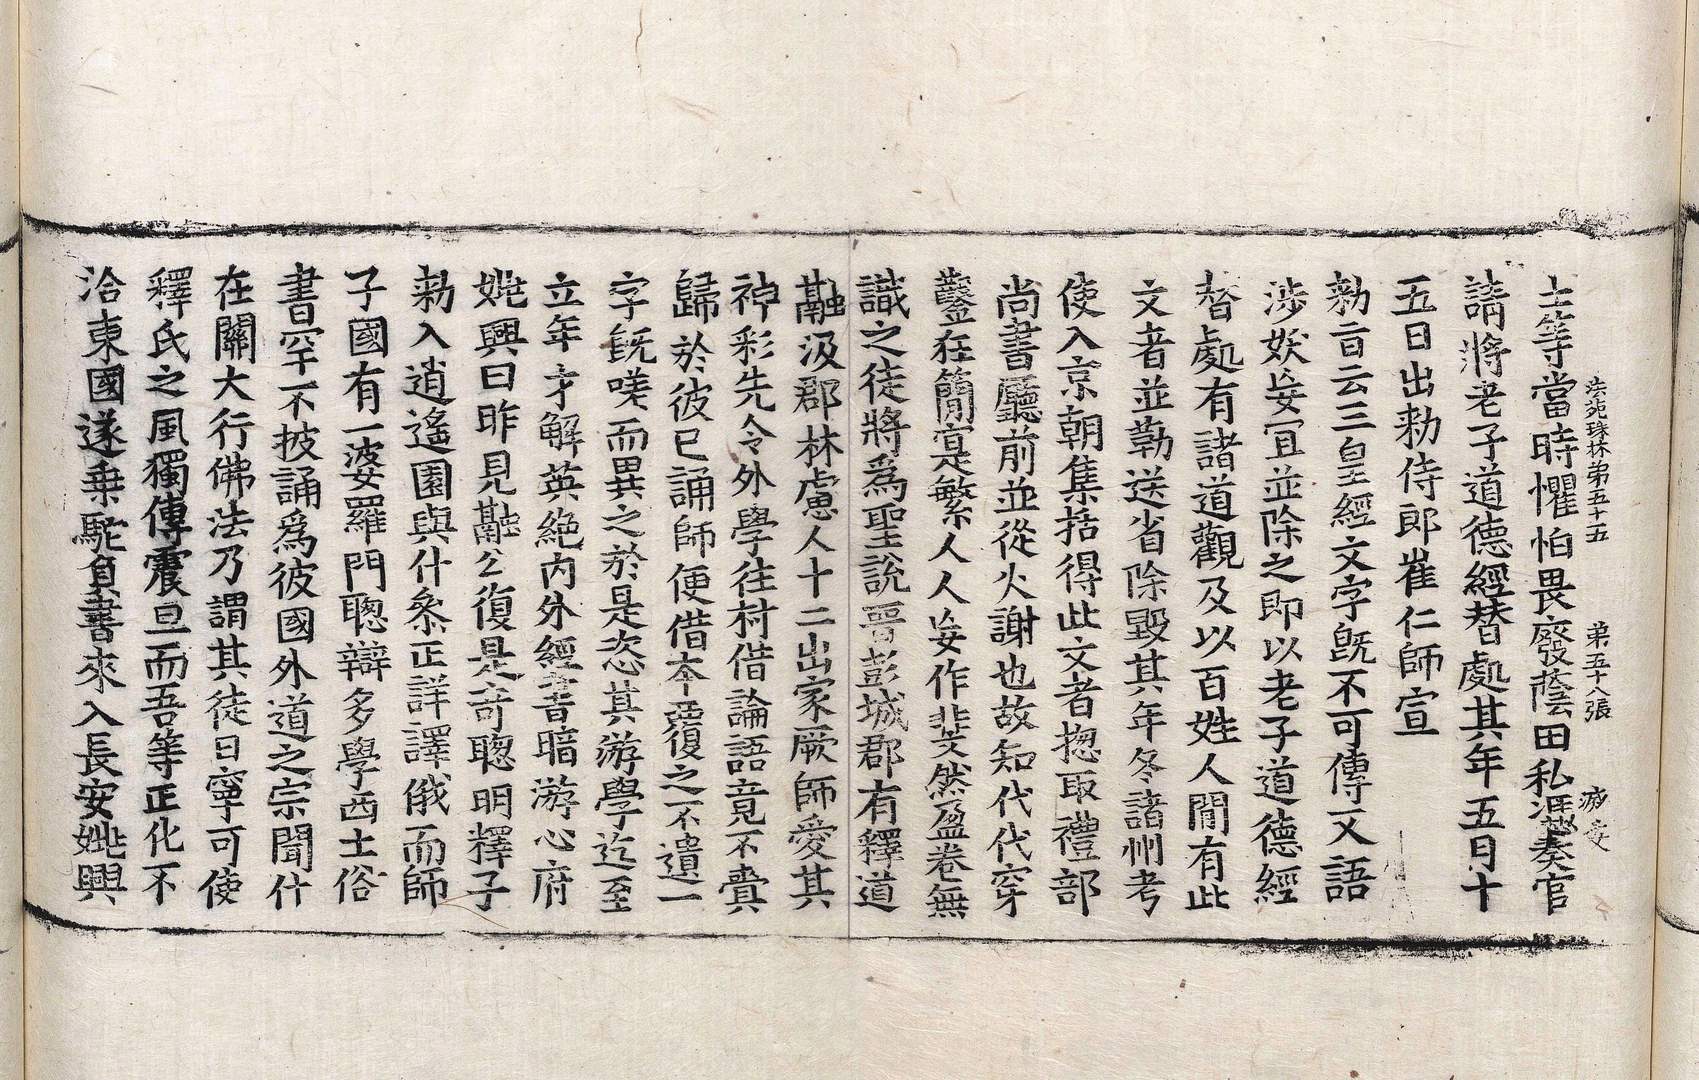 法苑珠林第五十五 第五十八張
士等當時懼怕畏廢蔭田私憑奏官
請將老子道德經替處其年五月十
五日出勑侍郎崔仁師宣
勑旨云三皇經文字旣不可傳又語
涉妖妄冝並除之即以老子道德經
替處有諸道觀及以百姓人閒有此
文者並勒送省除毀其年冬諸州考
使入京朝集括得此文者揔取禮部
尚書廳前並從火謝也故知代代穿
鑿狂簡寔繁人人妄作斐然盈卷無
識之徒將爲聖說晉彭城郡有釋道
融汲郡林慮人十二出家厥師愛其
神彩先令外學往村借論語竟不賷
歸於彼已誦師便借本覆之不遺一
字旣嗟而異之於是恣其游學迄至
立年才解英絕內外經書暗游心府
姚興曰昨見融公復是奇聰明釋子
勑入逍遙園與什叅正詳譯俄而師
子國有一婆羅門聰辯多學西土俗
書罕不披誦爲彼國外道之宗聞什
在關大行佛法乃謂其徒曰寧可使
釋氏之風獨傳震旦而吾等正化不
洽東國遂乗駝負書來入長安姚興